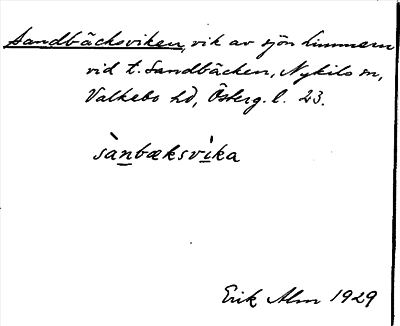 Sandbäcksviken, vik av sjön Limmern
vid t. Sandbäcken, Nykils sn,
Valkebo hd, Österg. l. 23.
sànbæksvìka
Erik Alm 1929